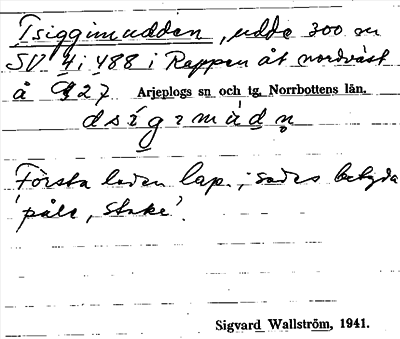 Tsiggimudden, udde 300 m
SV 4 i 488 i Rappen åt nordväst
å 9 27 Arjeplogs sn och tg, Norrbottens län.
dsigimùdn̥
Första leden lap.; sades betyda
'påle, stake'.
Sigvard Wallström, 1941.